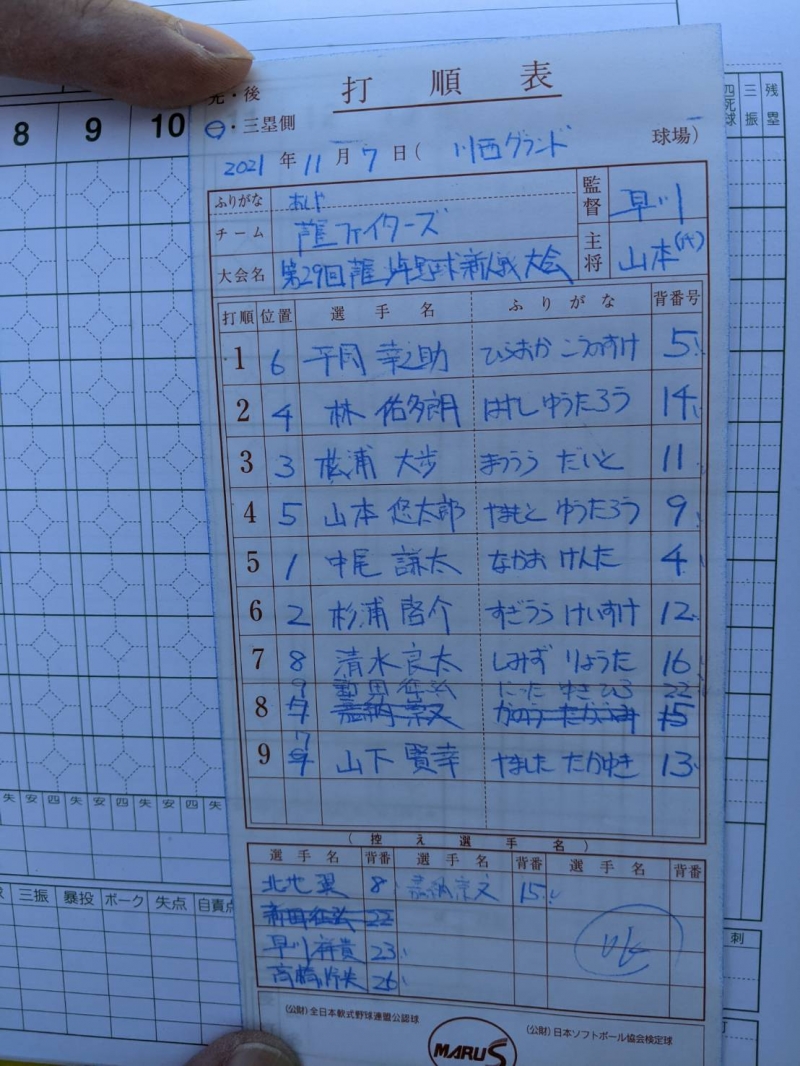 打順表
・後
・三塁側
2021年11月7日(川西グランド 球場)
ふりがな
チーム ファイターズ 監督 早川
大会名 第29回 野球新人戦大会 主将 山本(代)
打順 位置 選手名 ふりがな 背番号
1 6 平岡 幸之助 ひらおか こうのすけ 5
2 4 林 佑多朗 はやし ゆうたろう 14
3 3 松浦 大歩 まつうら だいと 11
4 5 山本 悠太郎 やまもと ゆうたろう 9
5 1 中尾 謙太 なかお けんた 4
6 2 杉浦 啓介 すぎうら けいすけ 12
7 8 清水 良太 しみず りょうた 16
9 にった ゆきひろ 22
8 嘉納 崇文 かのう たかふみ 15
9 7 山下 賢幸 やました たかゆき 13
(控え選手名)
選手名 背番 選手名 背番 選手名 背番
北地 翼 8 嘉納崇文 15
新田 22
早川 23
高橋 26
(公財)全日本軟式野球連盟公認球
(公財)日本ソフトボール協会検定球
MARUS
8 9 10
四死球 三振 残塁
失 安 四 失 安 四 失 安 四 失
三振 暴投 ボーク 失点 自責点
刺